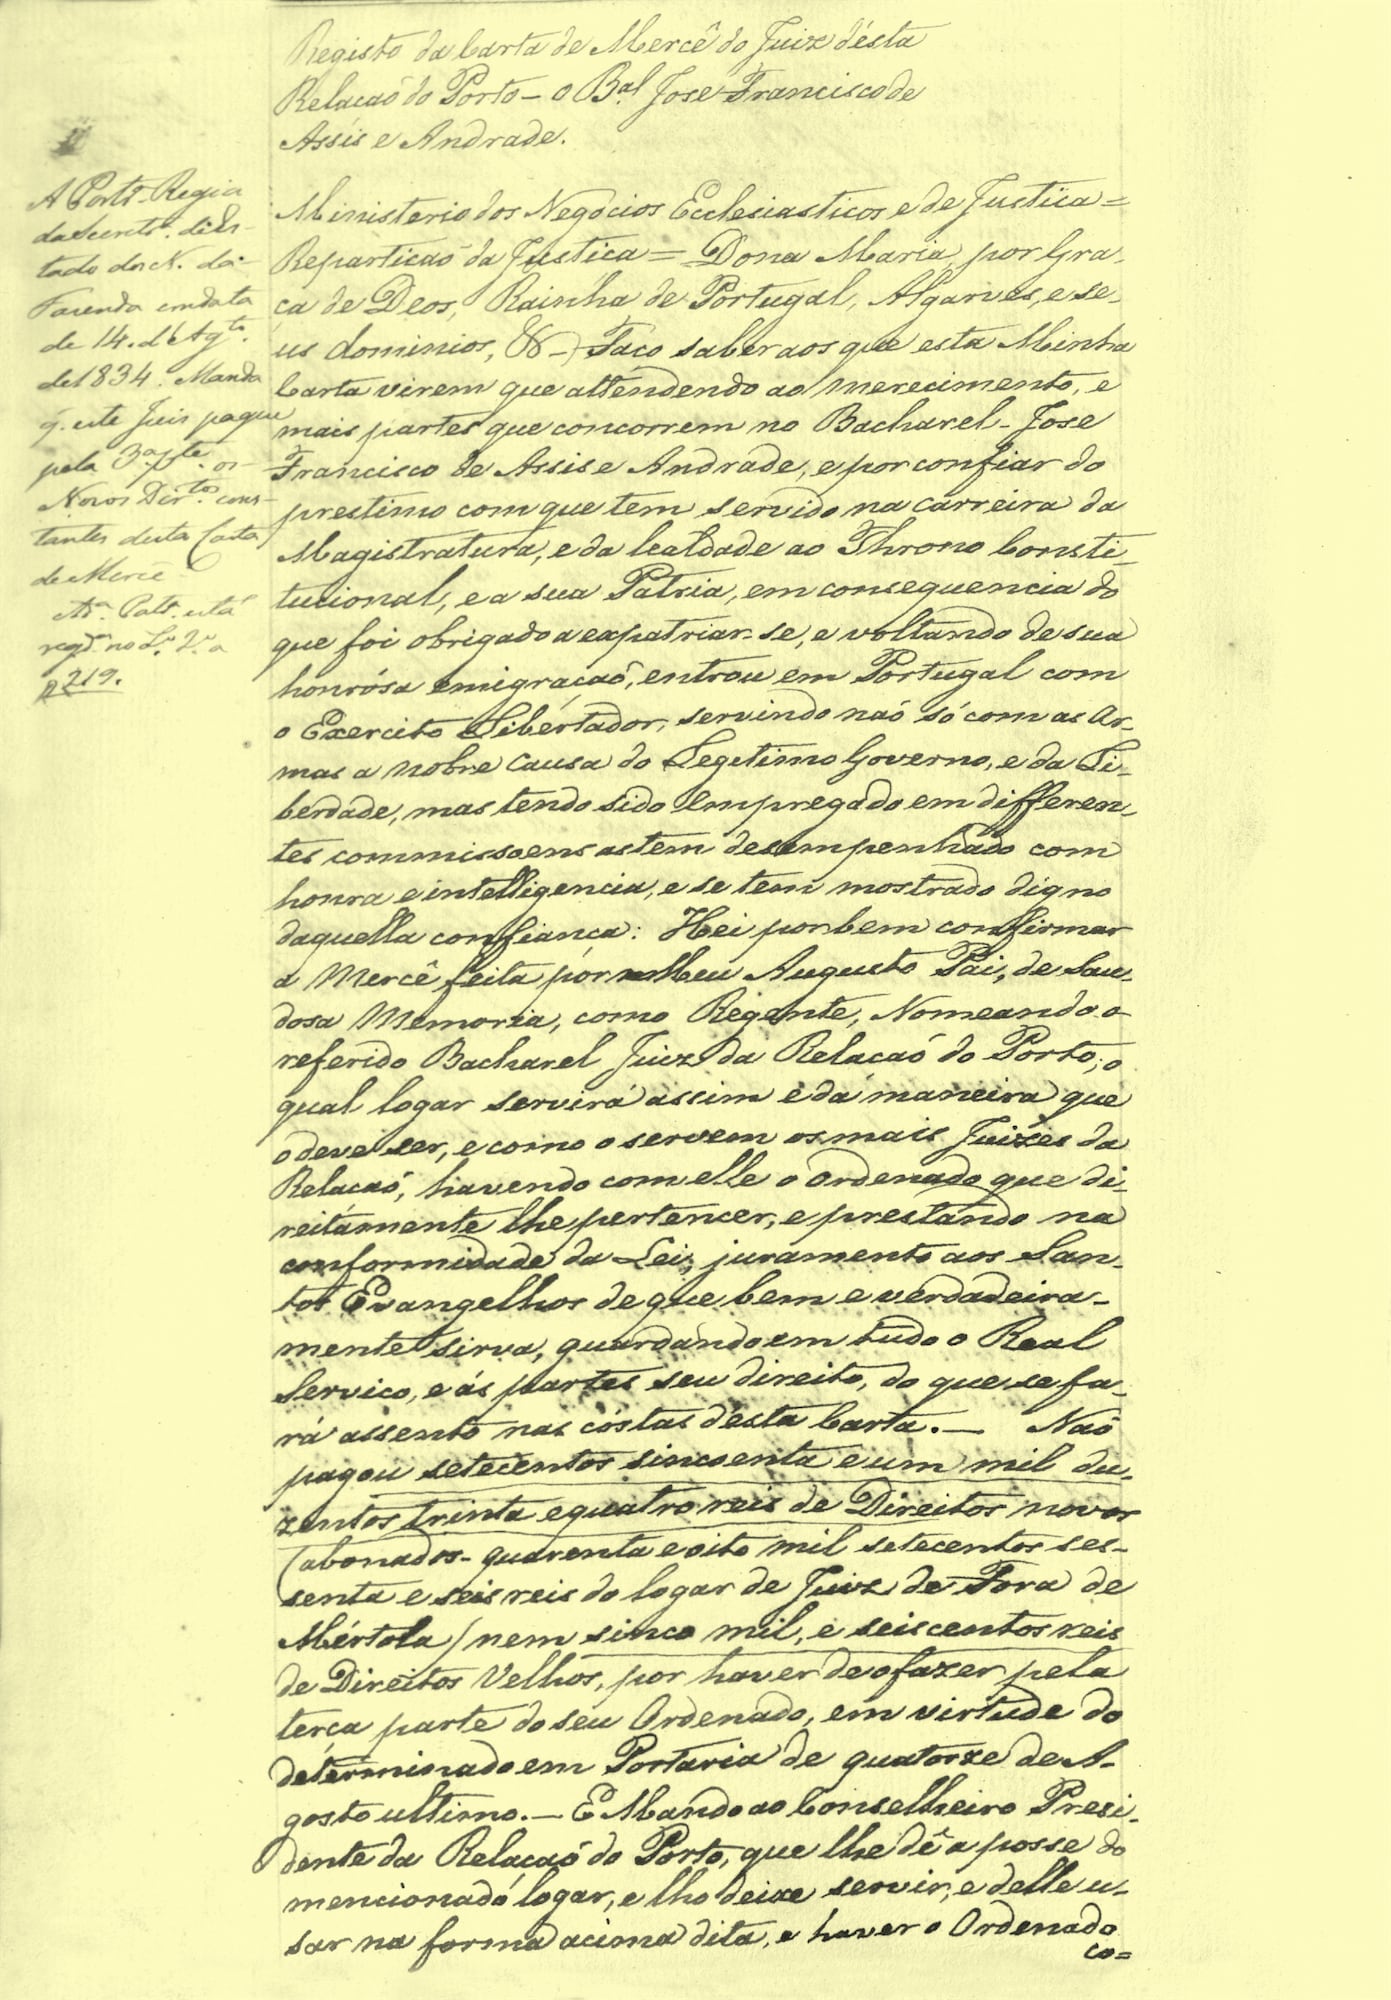 Registo da Carta de Mercê do Juiz d'ésta
Relacaõ do Porto - o B.al José Francisco de
Assis e Andrade.
A Port.a Regia
da Secret.a d'Es-
tado dos N. da
Fazenda em data
de 14. de Agt.o
de 1834. Manda
q. este Juis pague
pela 3.a p.te os
Novos Dir.tos cons-
tantes desta Carta
de Mercê
A m.a Port. está
regd.a no L.o 2.o a
f 219.
Ministerio dos Negócios Ecclesiasticos e de Justiça =
Reparticaõ da Justica = Dona Maria, por Gra-
ça de Deos, Rainha de Portugal, Algarves, e se-
us dominios, &-) Faço saber aos que esta Minha
Carta virem que attendendo ao merecimento, e
mais partes que concorrem no Bacharel - Jose
Francisco de Assis e Andrade, e por confiar do
prestimo com que tem servido na carreira da
Magistratura, e da lealdade ao Throno Consti-
tucional, e a sua Patria, em consequencia do
que foi obrigado a expatriar-se, e voltando de sua
honrósa emigracaõ, entrou em Portugal com
o Exercito Libértador, servindo naõ só com as Ar-
mas a nobre Causa do Legitimo Governo, e da Li-
berdade, mas tendo sido empregado em differen-
tes commissoens as tem desempenhado com
honra e intelligencia, e se tem mostrado digno
daquella confiança: Hei por bem confirmar
a Mercê feita por Meu Augusto Pai, de Sau-
dosa Memoria, como Regente, Nomeando o
referido Bacharel Juiz da Relacaõ do Porto; o
qual logar servirá assim e da maneira que
o deve ser, e como o servem os mais Juizes da
Relacaõ, havendo com elle o Ordenado que di-
reitamente lhe pertencer, e prestando na
conformidade da Lei, juramento aos San-
tos Evangelhos de que bem e verdadeira-
mente sirva, guardando em tudo o Real
Servico, e ás partes seu direito, do que se fa-
rá assento nas cóstas d'ésta Carta. — Naõ
pagou setecentos sincoenta e um mil du-
zentos trinta e quatro reis de Direitos novos
(abonados - quarenta e oito mil setecentos ses-
senta e seis reis do logar de Juiz de Fora de
Mértola) nem sinco mil, e seiscentos reis
de Direitos Velhos, por haver de o fazer pela
terça parte do seu Ordenado, em virtude do
determinado em Portaria de quatorze de A-
gosto ultimo. — E Mando ao Conselheiro Presi-
dente da Relacaõ do Porto, que lhe dê a posse do
mencionado logar, e lho deixe servir, e delle u-
sar na forma acima dita, e haver o Ordenado
co=